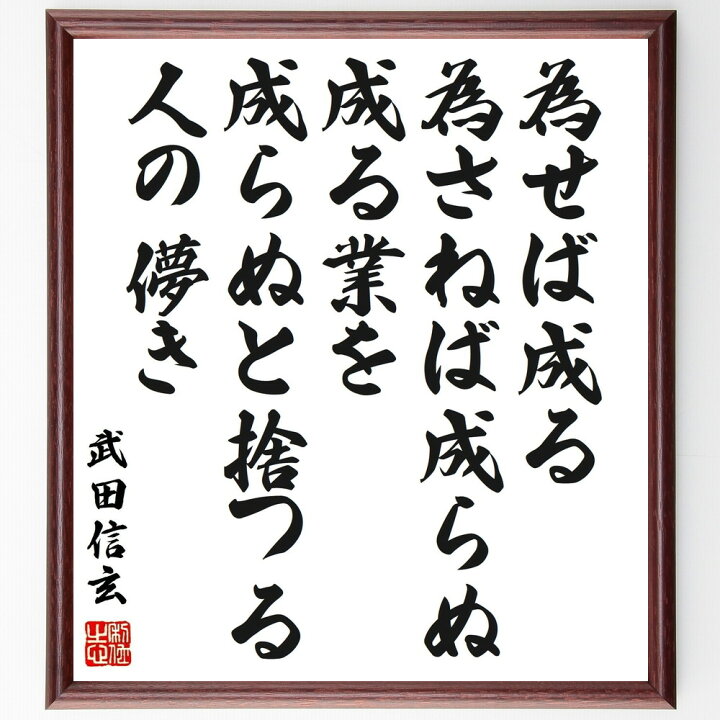 為せば成る
為さねば成らぬ
成る業を
成らぬと捨つる
人の儚き
武田信玄